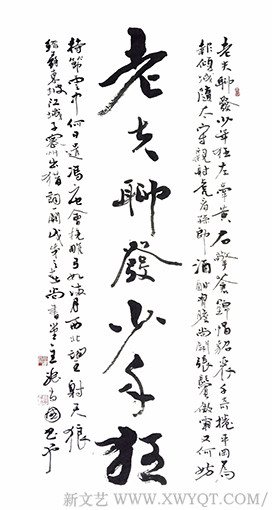 老夫聊發少年狂左牽黃右擎蒼錦帽貂裘千騎捲平岡為
報傾城隨太守親射虎看孫郎酒酣胸膽尚開張鬢微霜又何妨
老夫聊發少年狂
持節雲中何日遣馮唐會挽雕弓如滿月西北望射天狼
東坡江城子密州出獵詞一闋
新文艺 / WWW.XWYQT.COM